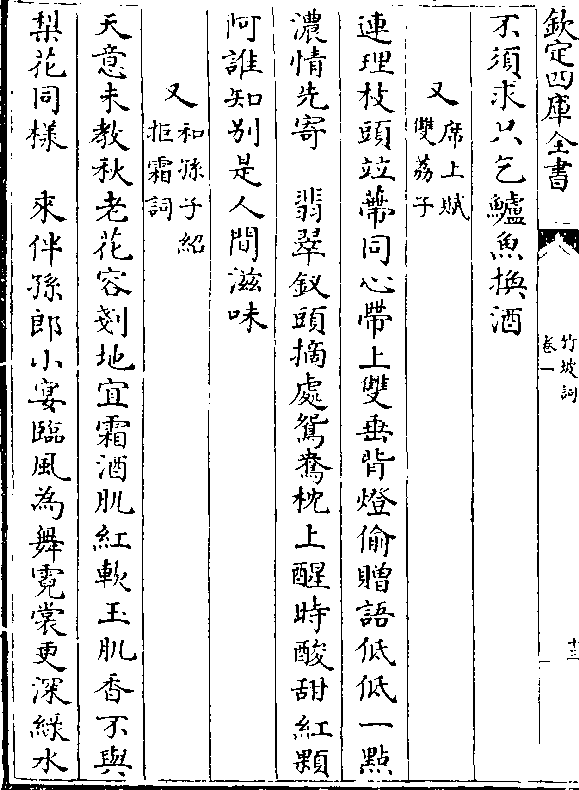 欽定四庫全書
竹坡詞
卷一
十三
不須求只乞鱸魚換酒
又
席上賦
雙荔子
連理枝頭竝蔕同心帶上雙垂背燈偷贈語低低一點
濃情先寄　翡翠釵頭摘處鴛鴦枕上醒時酸甜紅顆
阿誰知别是人間滋味
又
和孫子紹
拒霜詞
天意未教秋老花容剗地宜霜酒肌紅軟玉肌香不與
梨花同樣　來伴孫郎小宴臨風為舞霓裳更深緑水